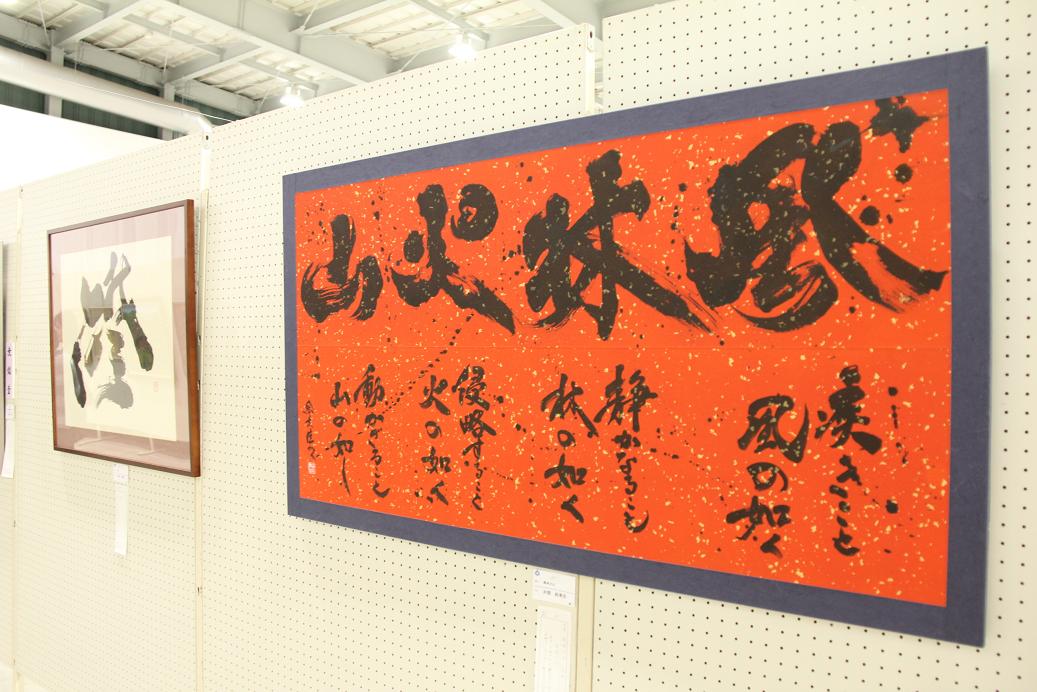 風林火山
疾きこと
風の如く
静かなること
林の如く
侵略すること
火の如く
動かざること
山の如し